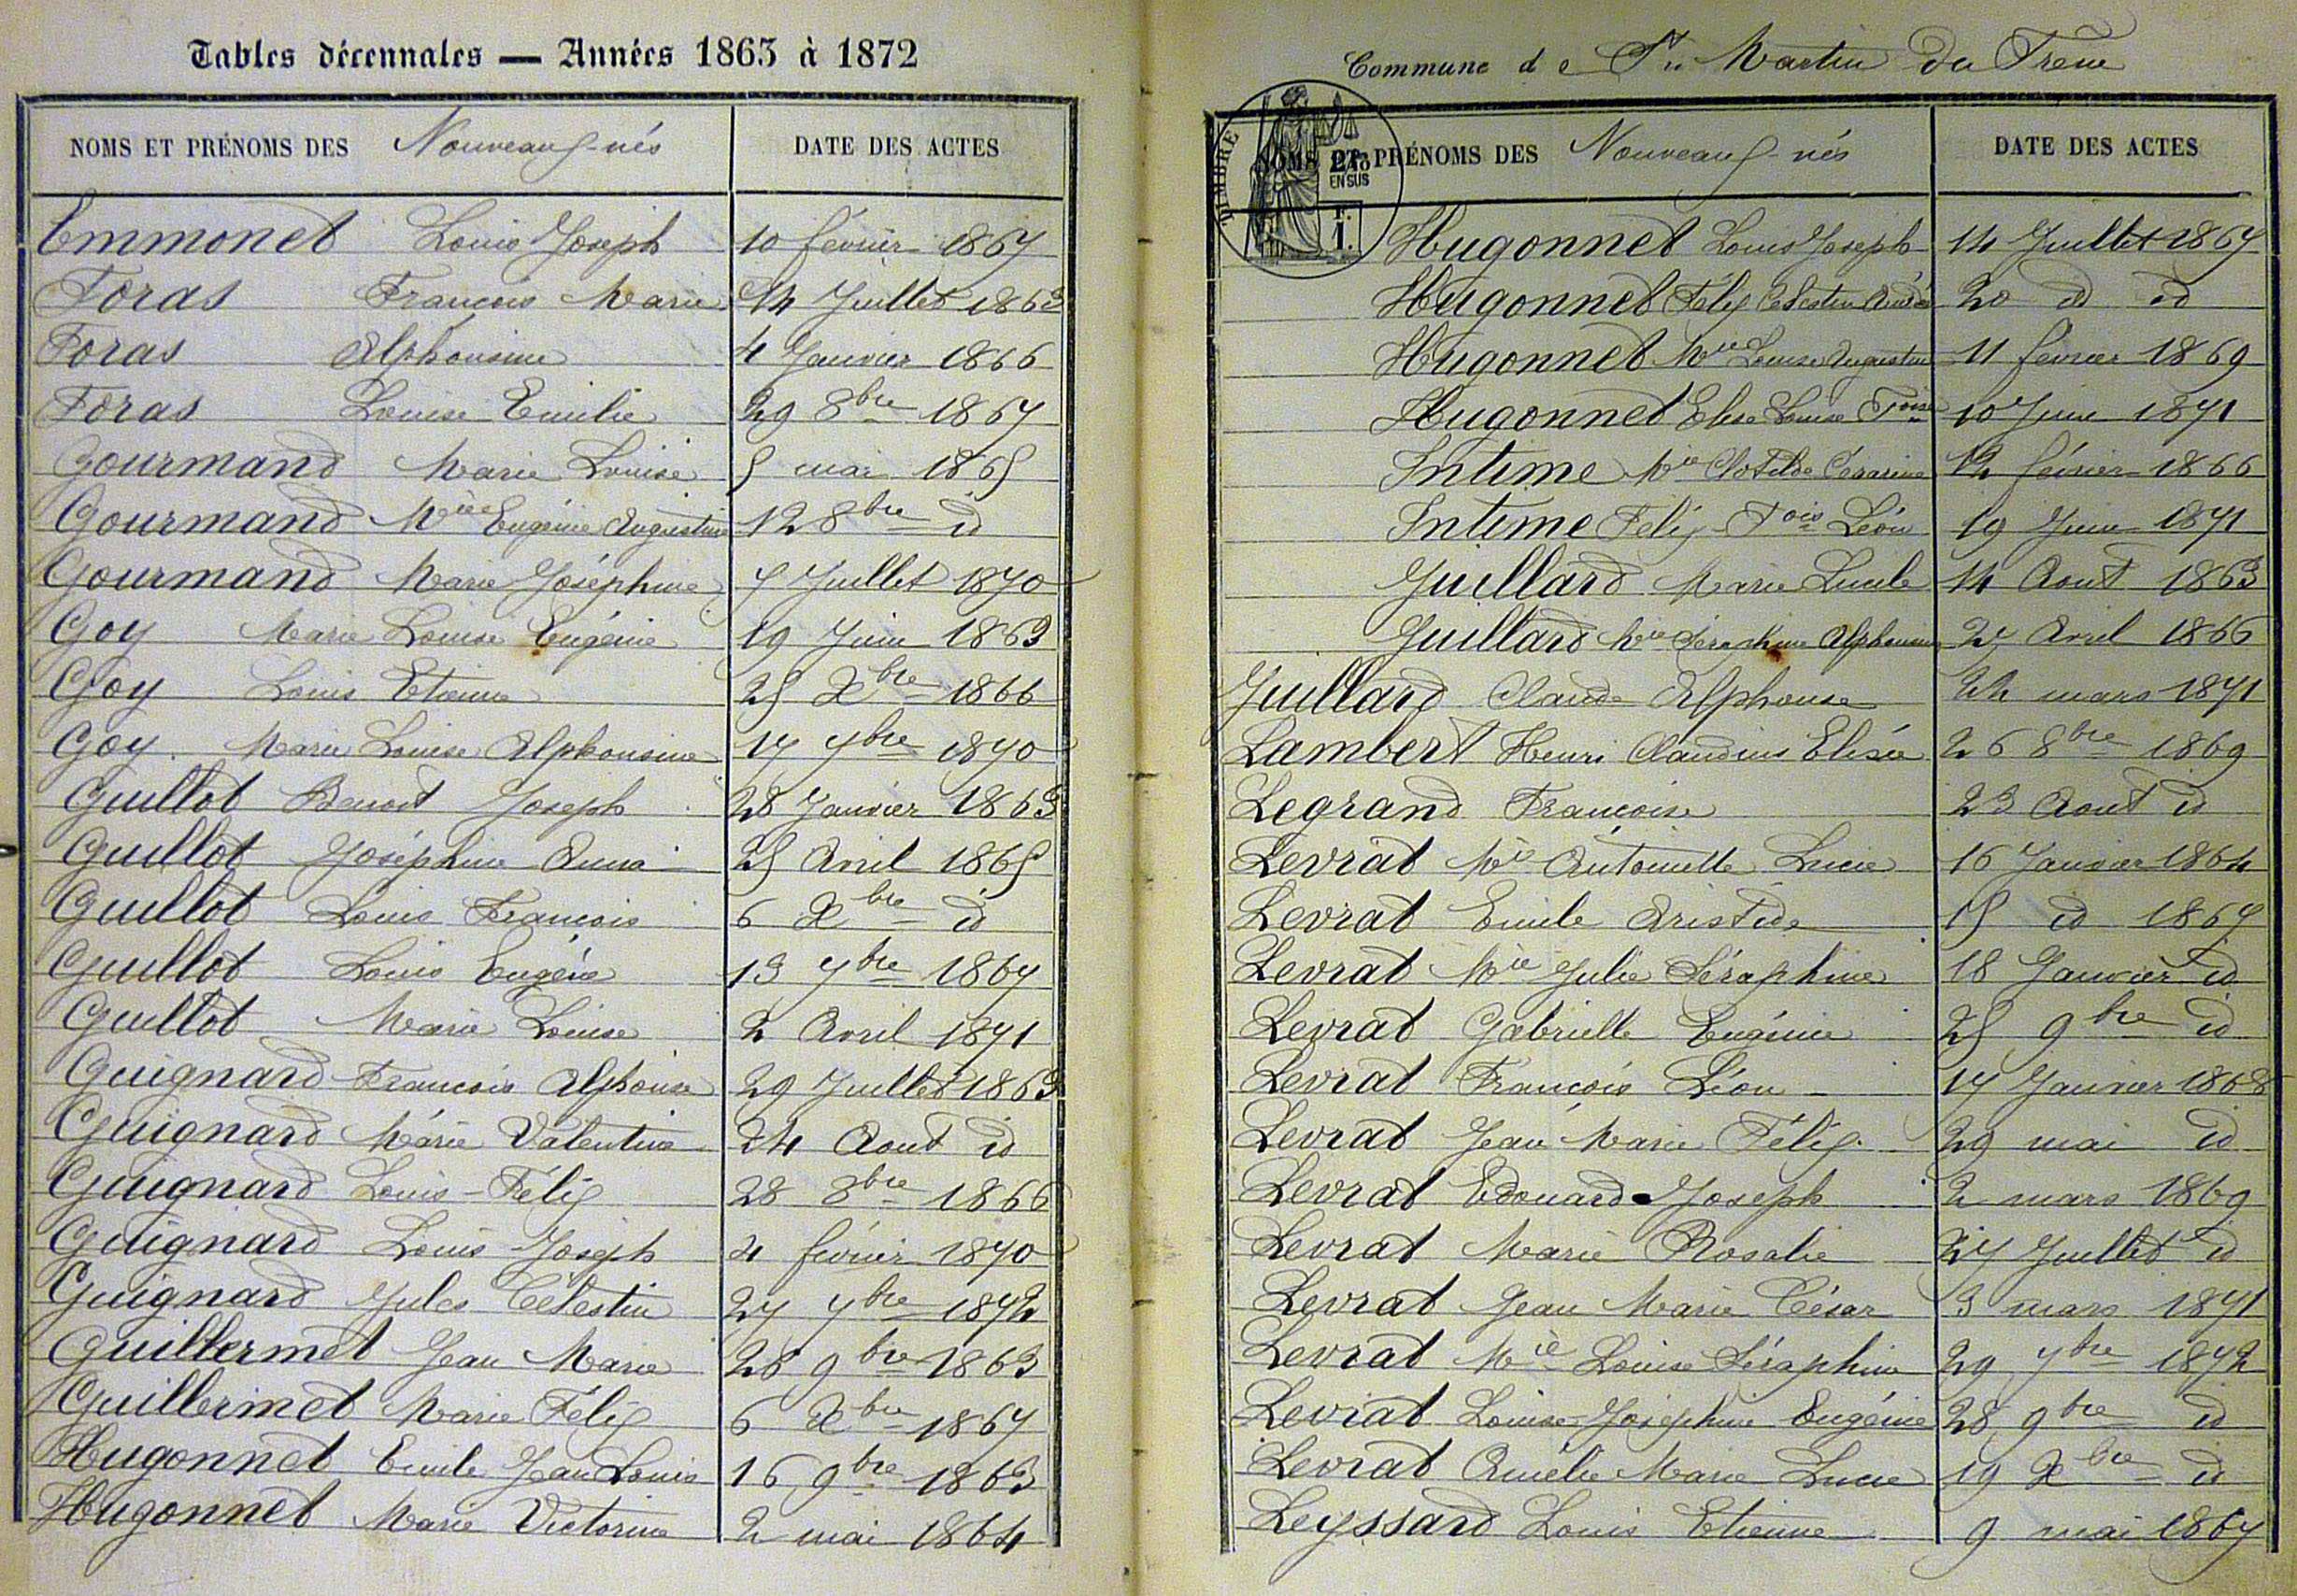 Tables décennales — Années 1863 à 1872
NOMS ET PRÉNOMS DES Nouveaux-nés DATE DES ACTES
Emmonet Louis Joseph 10 février 1867
Foras François Marie 14 Juillet 1863
Foras Alphonsine 4 Janvier 1866
Foras Louise Emilie 29 8bre 1867
Gourmand Marie Louise 5 mai 1865
Gourmand Mie Eugénie Augustine 12 8bre id
Gourmand Marie Joséphine 7 Juillet 1870
Goy Marie Louise Eugénie 19 Juin 1863
Goy Louis Etienne 25 Xbre 1866
Goy Marie Louise Alphonsine 17 7bre 1870
Guillot Benoit Joseph 28 Janvier 1863
Guillot Joséphine Anna 25 Avril 1865
Guillot Louis François 6 Xbre id
Guillot Louis Eugène 13 7bre 1867
Guillot Marie Louise 2 Avril 1871
Guignard François Alphonse 29 Juillet 1863
Guignard Marie Valentine 24 Aout id
Guignard Louis-Félix 28 8bre 1866
Guignard Louis Joseph 4 février 1870
Guignard Jules Célestin 27 7bre 1872
Guillermet Jean Marie 28 9bre 1863
Guillermet Marie Félix 6 Xbre 1867
Hugonnet Emile Jean Louis 16 9bre 1863
Hugonnet Marie Victorine 2 mai 1864
Commune de St Martin du Frêne
TIMBRE
2/10 EN SUS
F. 1.
NOMS ET PRÉNOMS DES Nouveaux-nés DATE DES ACTES
Hugonnet Louis Joseph 14 Juillet 1867
Hugonnet Félix Celestin André 20 id id
Hugonnet Mie Louise Augustine 11 février 1869
Hugonnet Elise Louise Foise 10 Juin 1871
Intime Mie Clotilde Césarine 12 février 1866
Intime Félix Fois Léon 19 Juin 1871
Juillard Marie Lucile 14 Aout 1863
Juillard Mie Séraphine Alphonsine 27 Avril 1866
Juillard Claude Alphonse 22 mars 1871
Lambert Henri Claudius Elisée 26 8bre 1869
Legrand Francoise 23 Aout id
Levrat Mie Antoinette Lucie 16 Janvier 1864
Levrat Emile Aristide 15 id 1867
Levrat Mie Julie Séraphine 18 Janvier id
Levrat Gabrielle Eugénie 25 9bre id
Levrat François Léon 17 Janvier 1868
Levrat Jean Marie Félix 29 mai id
Levrat Edouard Joseph 2 mars 1869
Levrat Marie Rosalie 27 Juillet id
Levrat Jean Marie César 3 mars 1871
Levrat Mie Louise Séraphine 29 7bre 1872
Levrat Louise Joséphine Eugénie 28 9bre id
Levrat Amélie Marie Lucie 19 Xbre id
Leyssard Louis Etienne 9 mai 1867